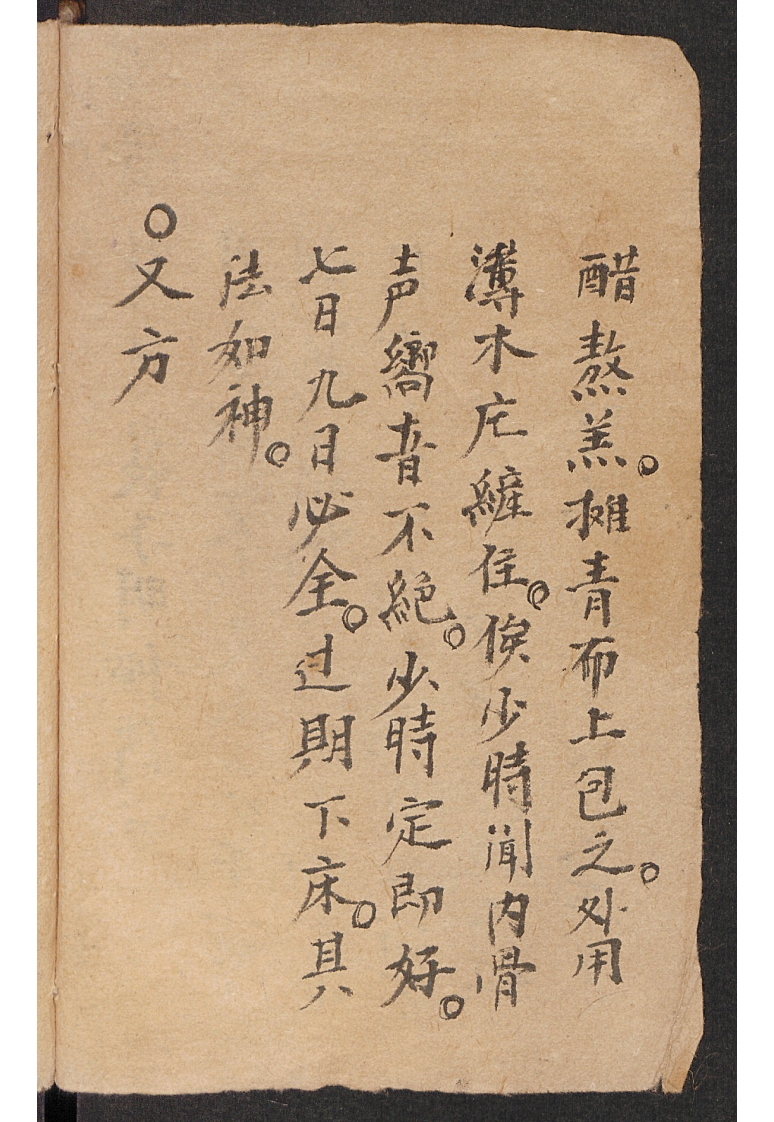 醋熬羔。摊青布上包之。外用
薄木庄纏住。俟少時聞内骨
声嚮音不絕。少時定即好。
七日九日必全。过期下床。其
法如神。
○又方